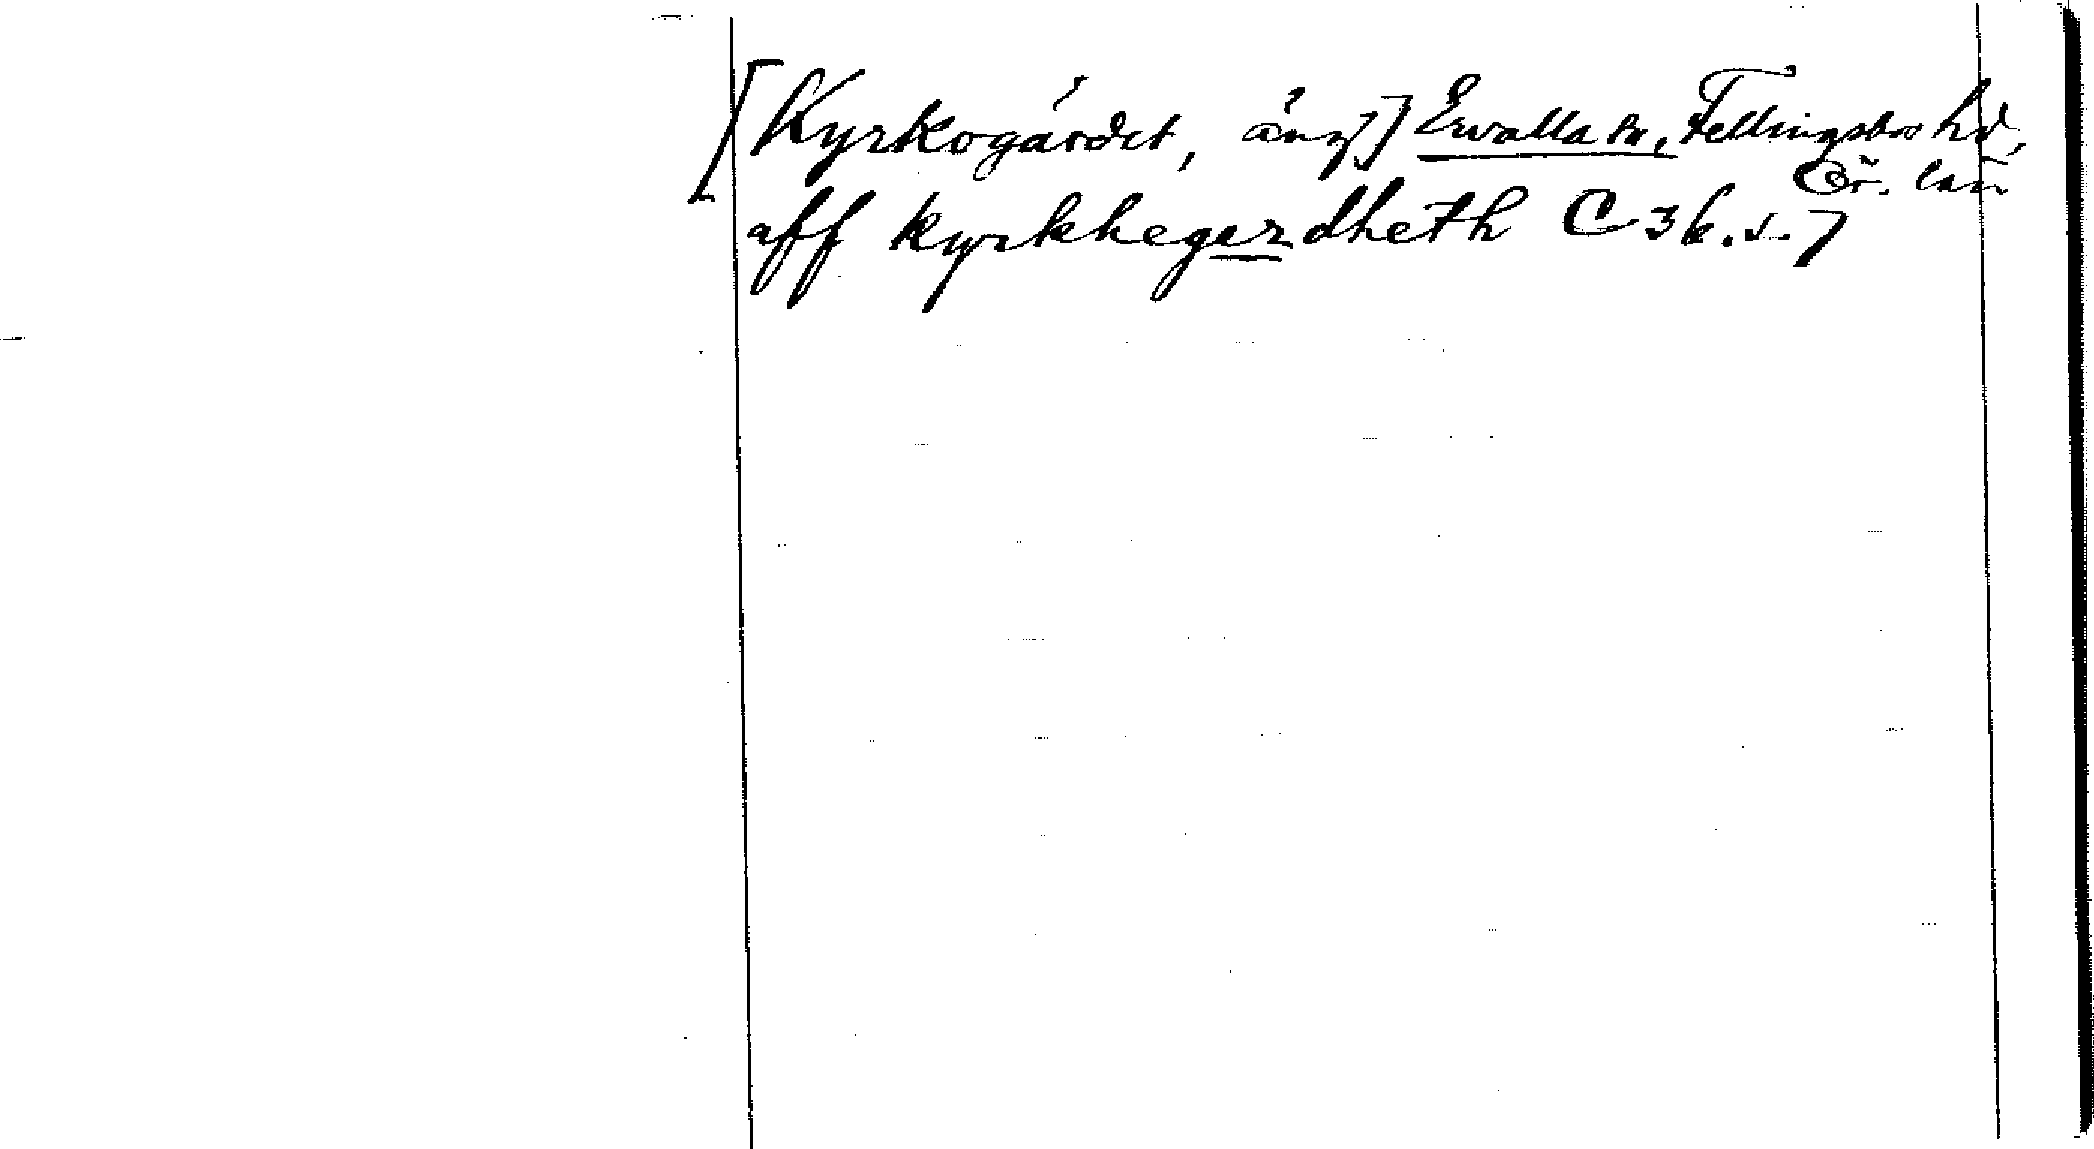 [Kyrkogärdet, äng] Ervalla sn, Fellingsbro hd,
Ör. län
aff kyrkhegerdheth C 36. s. 7